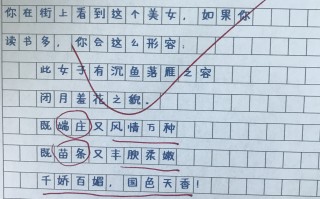 你在街上看到这个美女，如果你
读书多，你会这么形容：
此女子有沉鱼落雁之容
闭月羞花之貌．
既端庄又风情万种
既苗条又丰腴柔嫩
千娇百媚，国色天香！